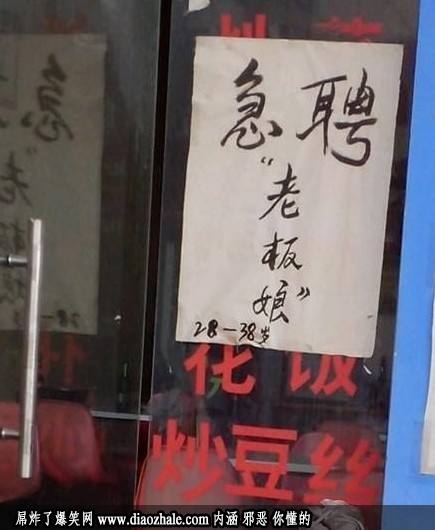 急聘
“老板娘”
28－38岁
花饭
炒豆丝
屌炸了爆笑网 www.diaozhale.com 内涵 邪恶 你懂的